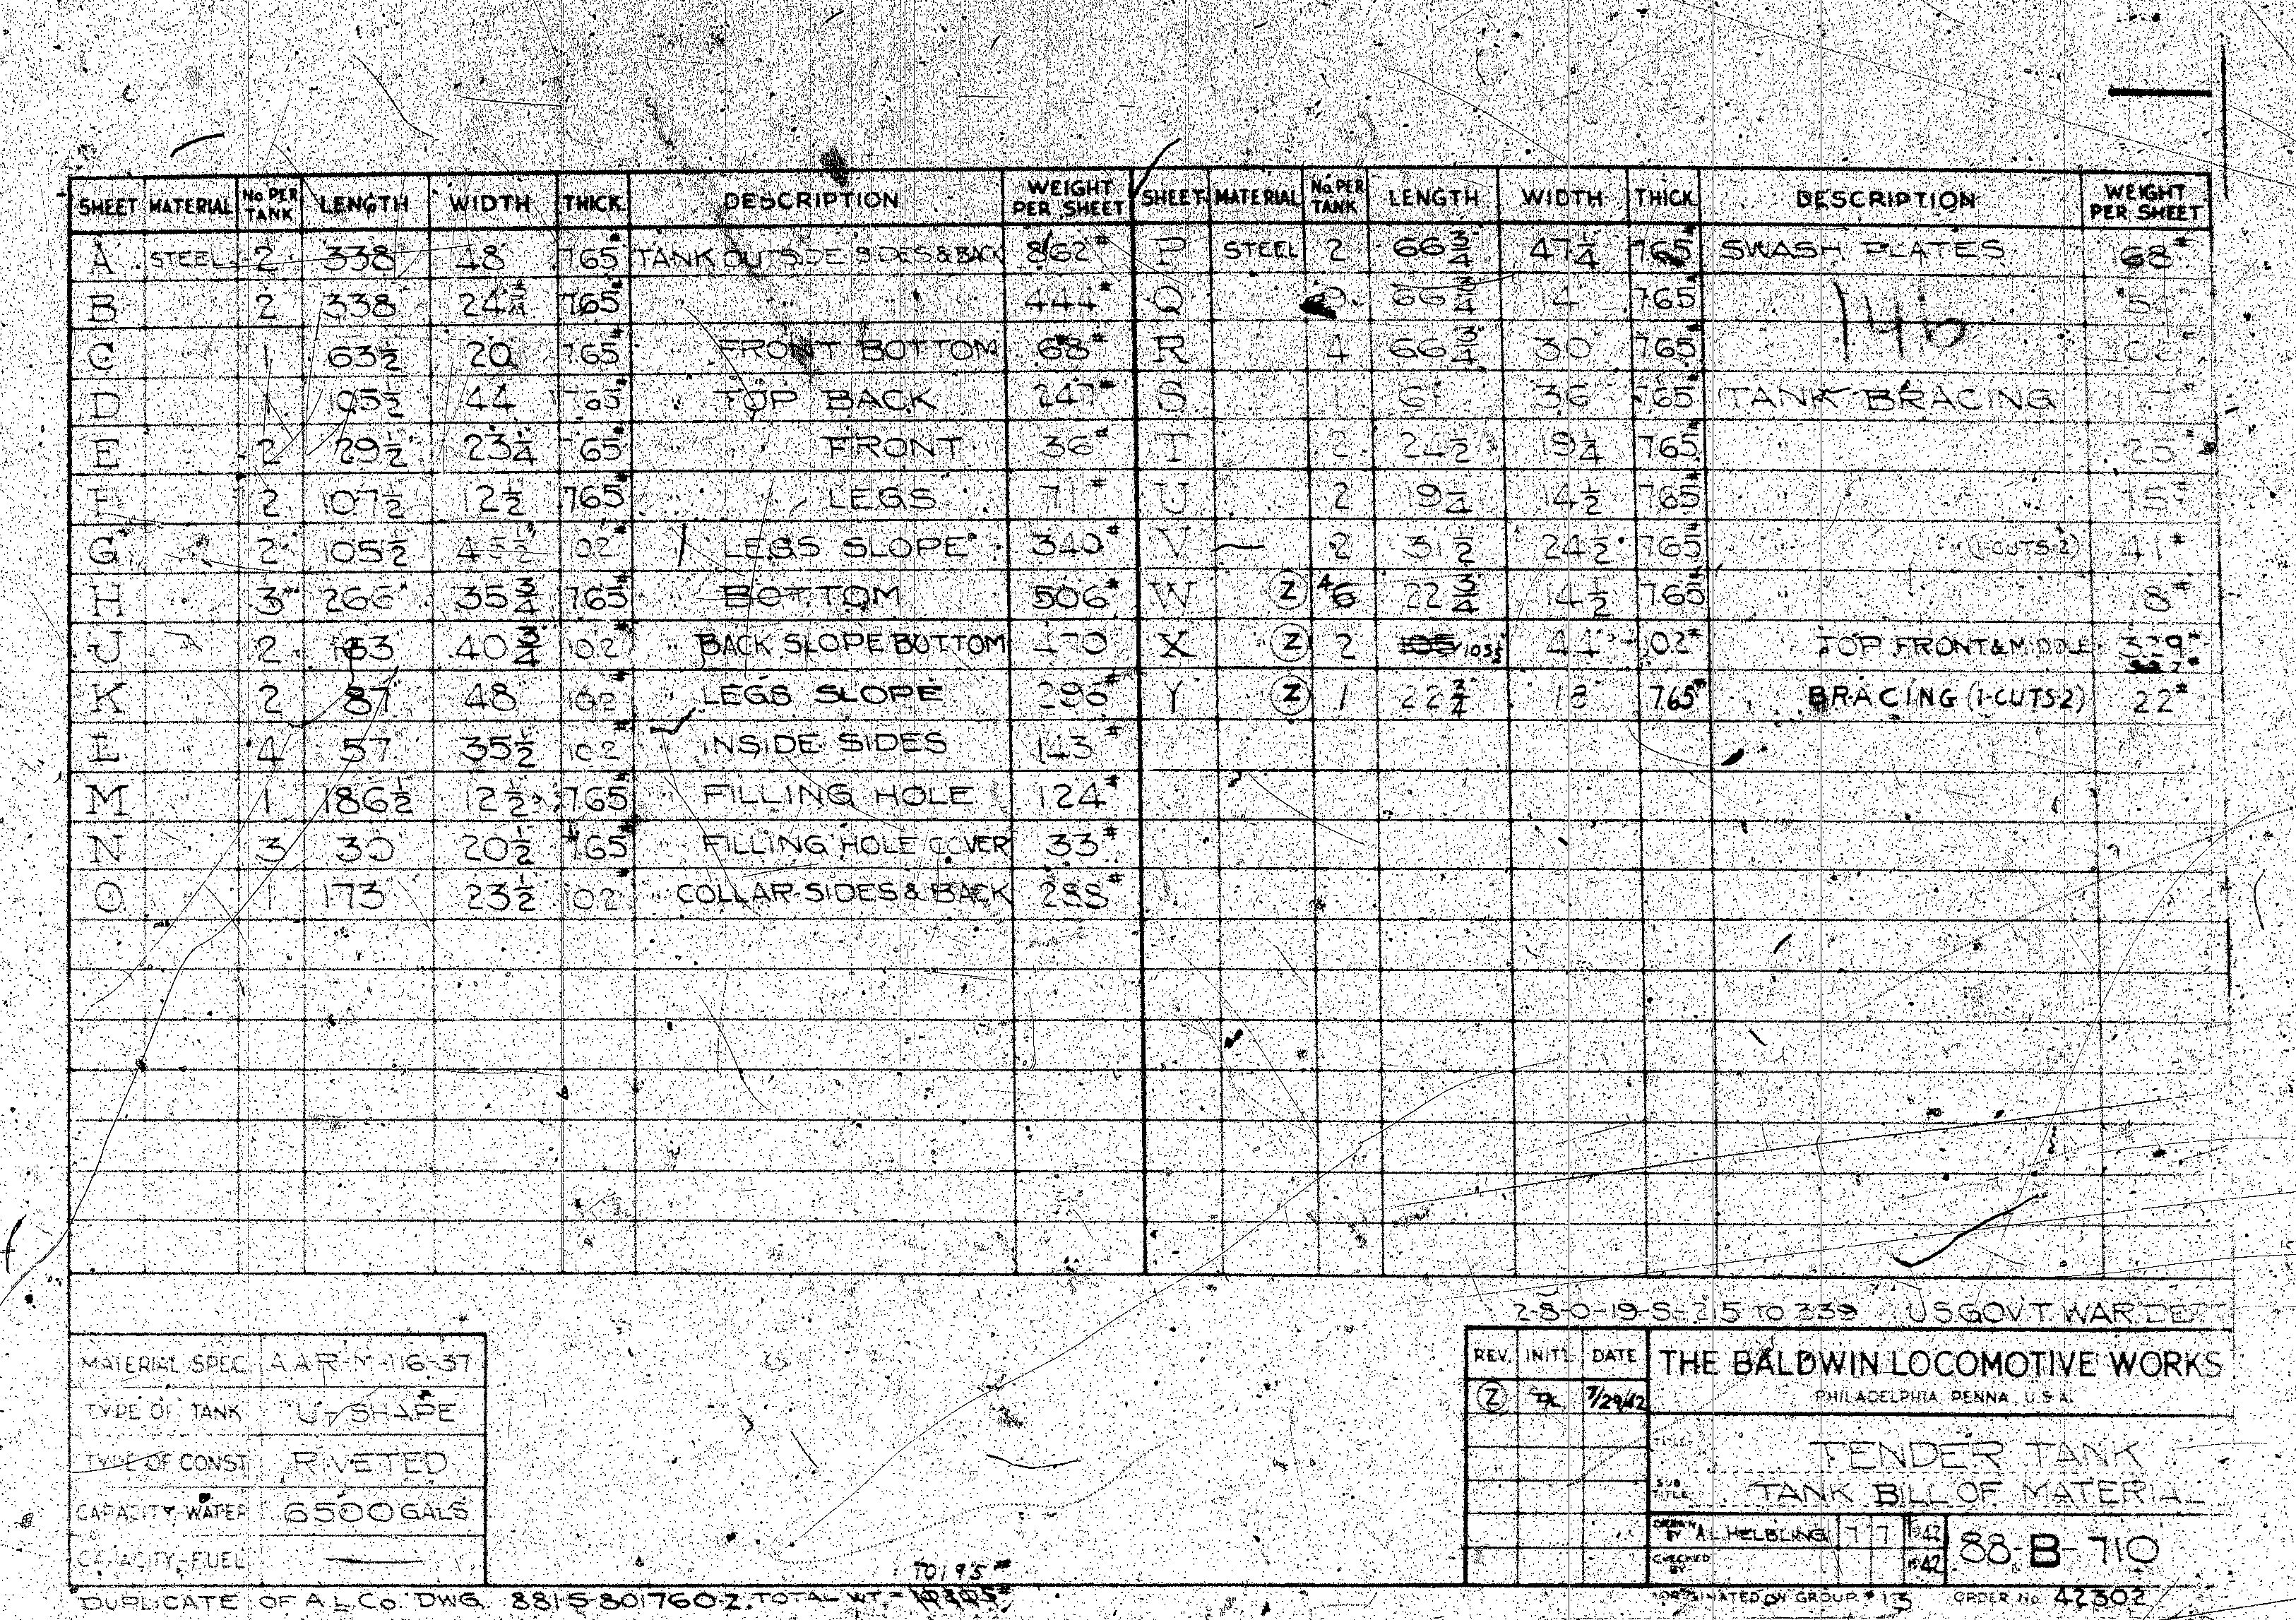 SHEET MATERIAL No PER TANK LENGTH WIDTH THICK. DESCRIPTION WEIGHT PER SHEET SHEET MATERIAL No PER TANK LENGTH WIDTH THICK. DESCRIPTION WEIGHT PER SHEET
A STEEL 2 338 48 765# TANK OUTSIDE SIDES & BACK 862# P STEEL 2 66 3/4 47 1/4 765# SWASH PLATES 68#
B 2 338 24 3/4 765# 444# Q 66 3/4 14 765#
C 1 63 1/2 20 765# FRONT BOTTOM 68# R 4 66 3/4 30 765#
D 1 105 1/2 44 765# TOP BACK 247# S 36 765# TANK BRACING
E 2 29 1/2 23 1/4 765# FRONT 36# T 2 24 1/2 19 1/4 765# 25#
F 2 107 1/2 12 1/2 765# LEGS 71# U 2 19 1/4 14 1/2 765# 15#
G 2 105 1/2 45 1/2 102# LEGS SLOPE 340# V 2 31 1/2 24 1/2 765# (1-CUTS-2) 41#
H 3 266 35 3/4 765# BOTTOM 506# W Z 4 6 22 3/4 14 1/2 765# 18#
J 2 163 40 3/4 102# BACK SLOPE BOTTOM 470 X Z 2 105 103 1/2 44 102# TOP FRONT & MIDDLE 329#
K 2 87 48 102# LEGS SLOPE 296# Y Z 1 22 3/4 18 765# BRACING (1-CUTS-2) 22#
L 4 57 35 1/2 102# INSIDE SIDES 143#
M 1 186 1/2 12 1/2 765# FILLING HOLE 124#
N 3 30 20 1/2 765# FILLING HOLE COVER 33#
O 1 173 23 1/2 102# COLLAR-SIDES & BACK 288#
146
2-8-0-19-S-215 TO 239 U S GOV'T. WAR DEPT
MATERIAL SPEC. AAR-M-116-37
TYPE OF TANK U-SHAPE
TYPE OF CONST. RIVETED
CAPACITY-WATER 6500 GALS
CAPACITY-FUEL —
REV. INIT'L DATE
Z 7/29/42
THE BALDWIN LOCOMOTIVE WORKS
PHILADELPHIA, PENNA., U.S.A.
TITLE TENDER TANK
SUB TITLE TANK BILL OF MATERIAL
DRAWN BY A.L. HELBLING 7 7 1942
CHECKED BY 1942
88-B-710
DUPLICATE OF A L Co. DWG. 881-S-801760-2. TOTAL WT. = 10195#
ORIGINATED ON GROUP # 13 ORDER No. 42302